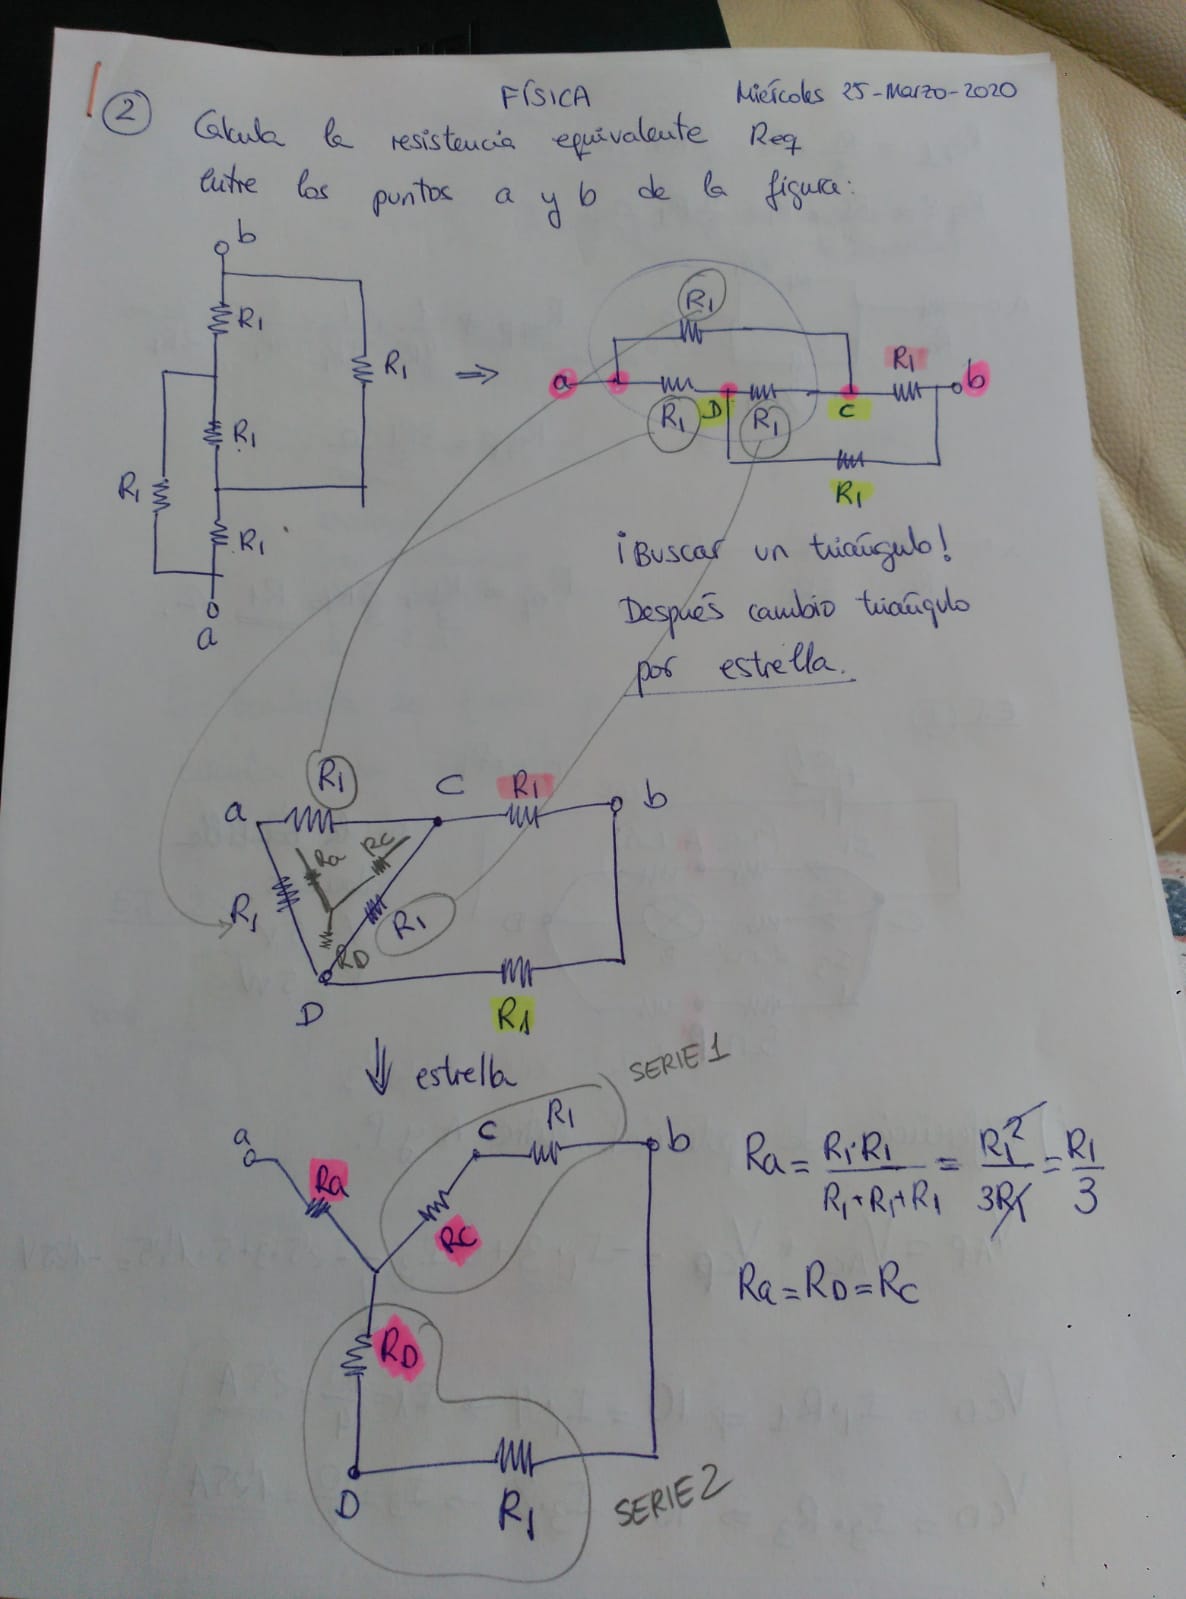 FÍSICA
Miércoles 25-Marzo-2020
2
Calcula la resistencia equivalente Req
entre los puntos a y b de la figura:
b
R1
R1
R1
R1
R1
a
⇒
R1
a
R1
b
R1
D
R1
C
R1
¡Buscar un triángulo!
Después cambio triángulo
por estrella.
R1
a
C
R1
b
Ra
RC
R1
R1
RD
D
R1
⇓ estrella
SERIE 1
a
C
R1
b
Ra
RC
RD
D
R1
SERIE 2
Ra = R1·R1 / R1+R1+R1 = R1² / 3R1 = R1 / 3
Ra = RD = RC